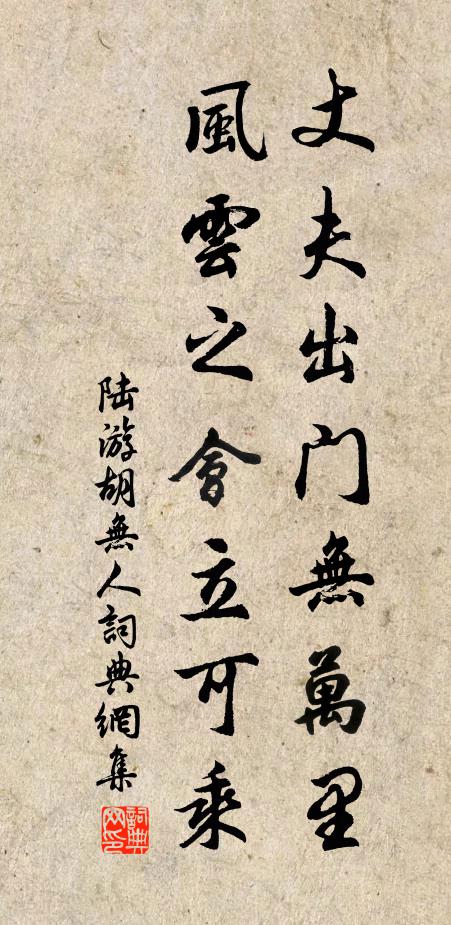 丈夫出门無萬里
風雲之會立可乘
陆游胡無人詞典網集
詞典网印